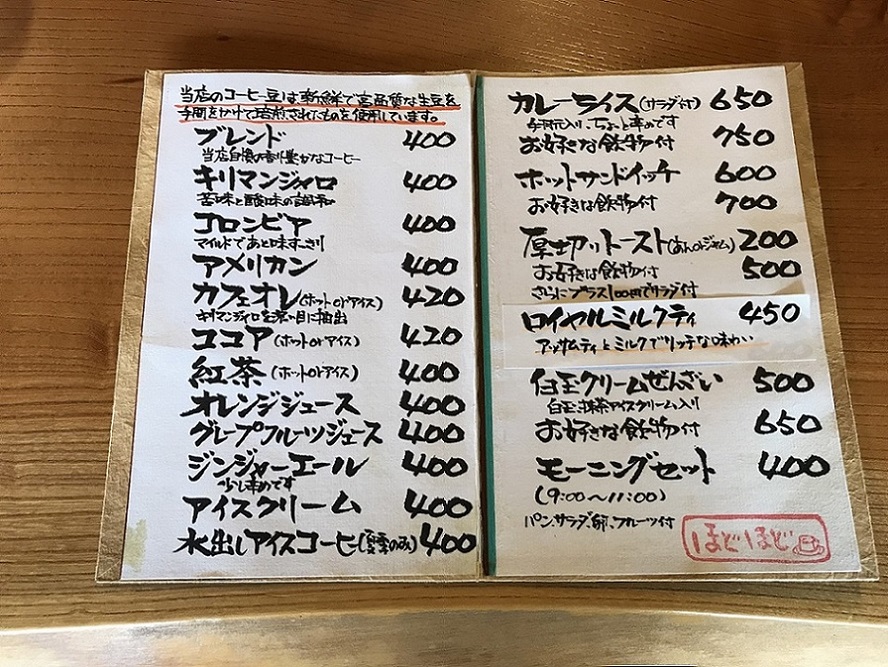 当店のコーヒー豆は新鮮で高品質な生豆を
手間をかけて焙煎されたものを使用しています。
ブレンド 400
当店自慢の香り豊かなコーヒー
キリマンジャロ 400
苦味と酸味の調和
コロンビア 400
マイルドであと味すっきり
アメリカン 400
カフェオレ(ホットorアイス) 420
キリマンジャロを濃い目に抽出
ココア(ホットorアイス) 420
紅茶(ホットorアイス) 400
オレンジジュース 400
グレープフルーツジュース 400
ジンジャーエール 400
少し辛めです
アイスクリーム 400
水出しアイスコーヒー(夏季のみ) 400
カレーライス(サラダ付) 650
牛肉入り、ちょっと辛めです
お好きな飲物付 750
ホットサンドイッチ 600
お好きな飲物付 700
厚切りトースト(あんorジャム) 200
お好きな飲物付 500
さらにプラス100円でサラダ付
ロイヤルミルクティ 450
アッサムティとミルクでリッチな味わい
白玉クリームぜんざい 500
白玉抹茶アイスクリーム入り
お好きな飲物付 650
モーニングセット 400
(9:00〜11:00)
パン、サラダ、卵、フルーツ付
ほどほど